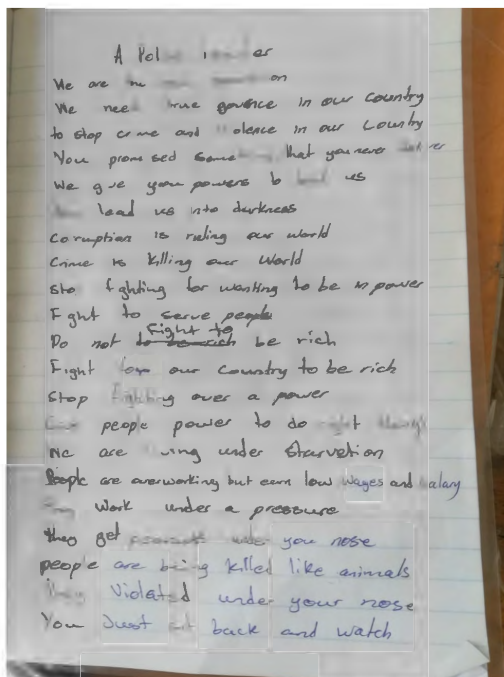 A
We are
We need true govence in our Country
to stop crime and in our Country
You promised that you never
We give your powers to us
lead us into darkness
Coruption is ruling our world
Crime is killing our World
Stop fighting for wanting to be in power
Fight to serve people
Do not Fight to be rich
Fight for our Country to be rich
Stop fighting over a power
people power to do right
We are under Starvetion
People are overworking but earn low wages and salary
Work under a pressure
they get under you nose
people are being killed like animals
Violated under your nose
You Just back and watch